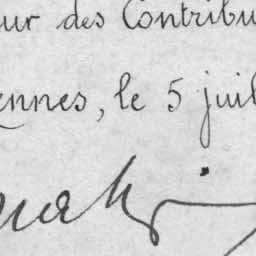 ur des Contribu
ennes, le 5 juil